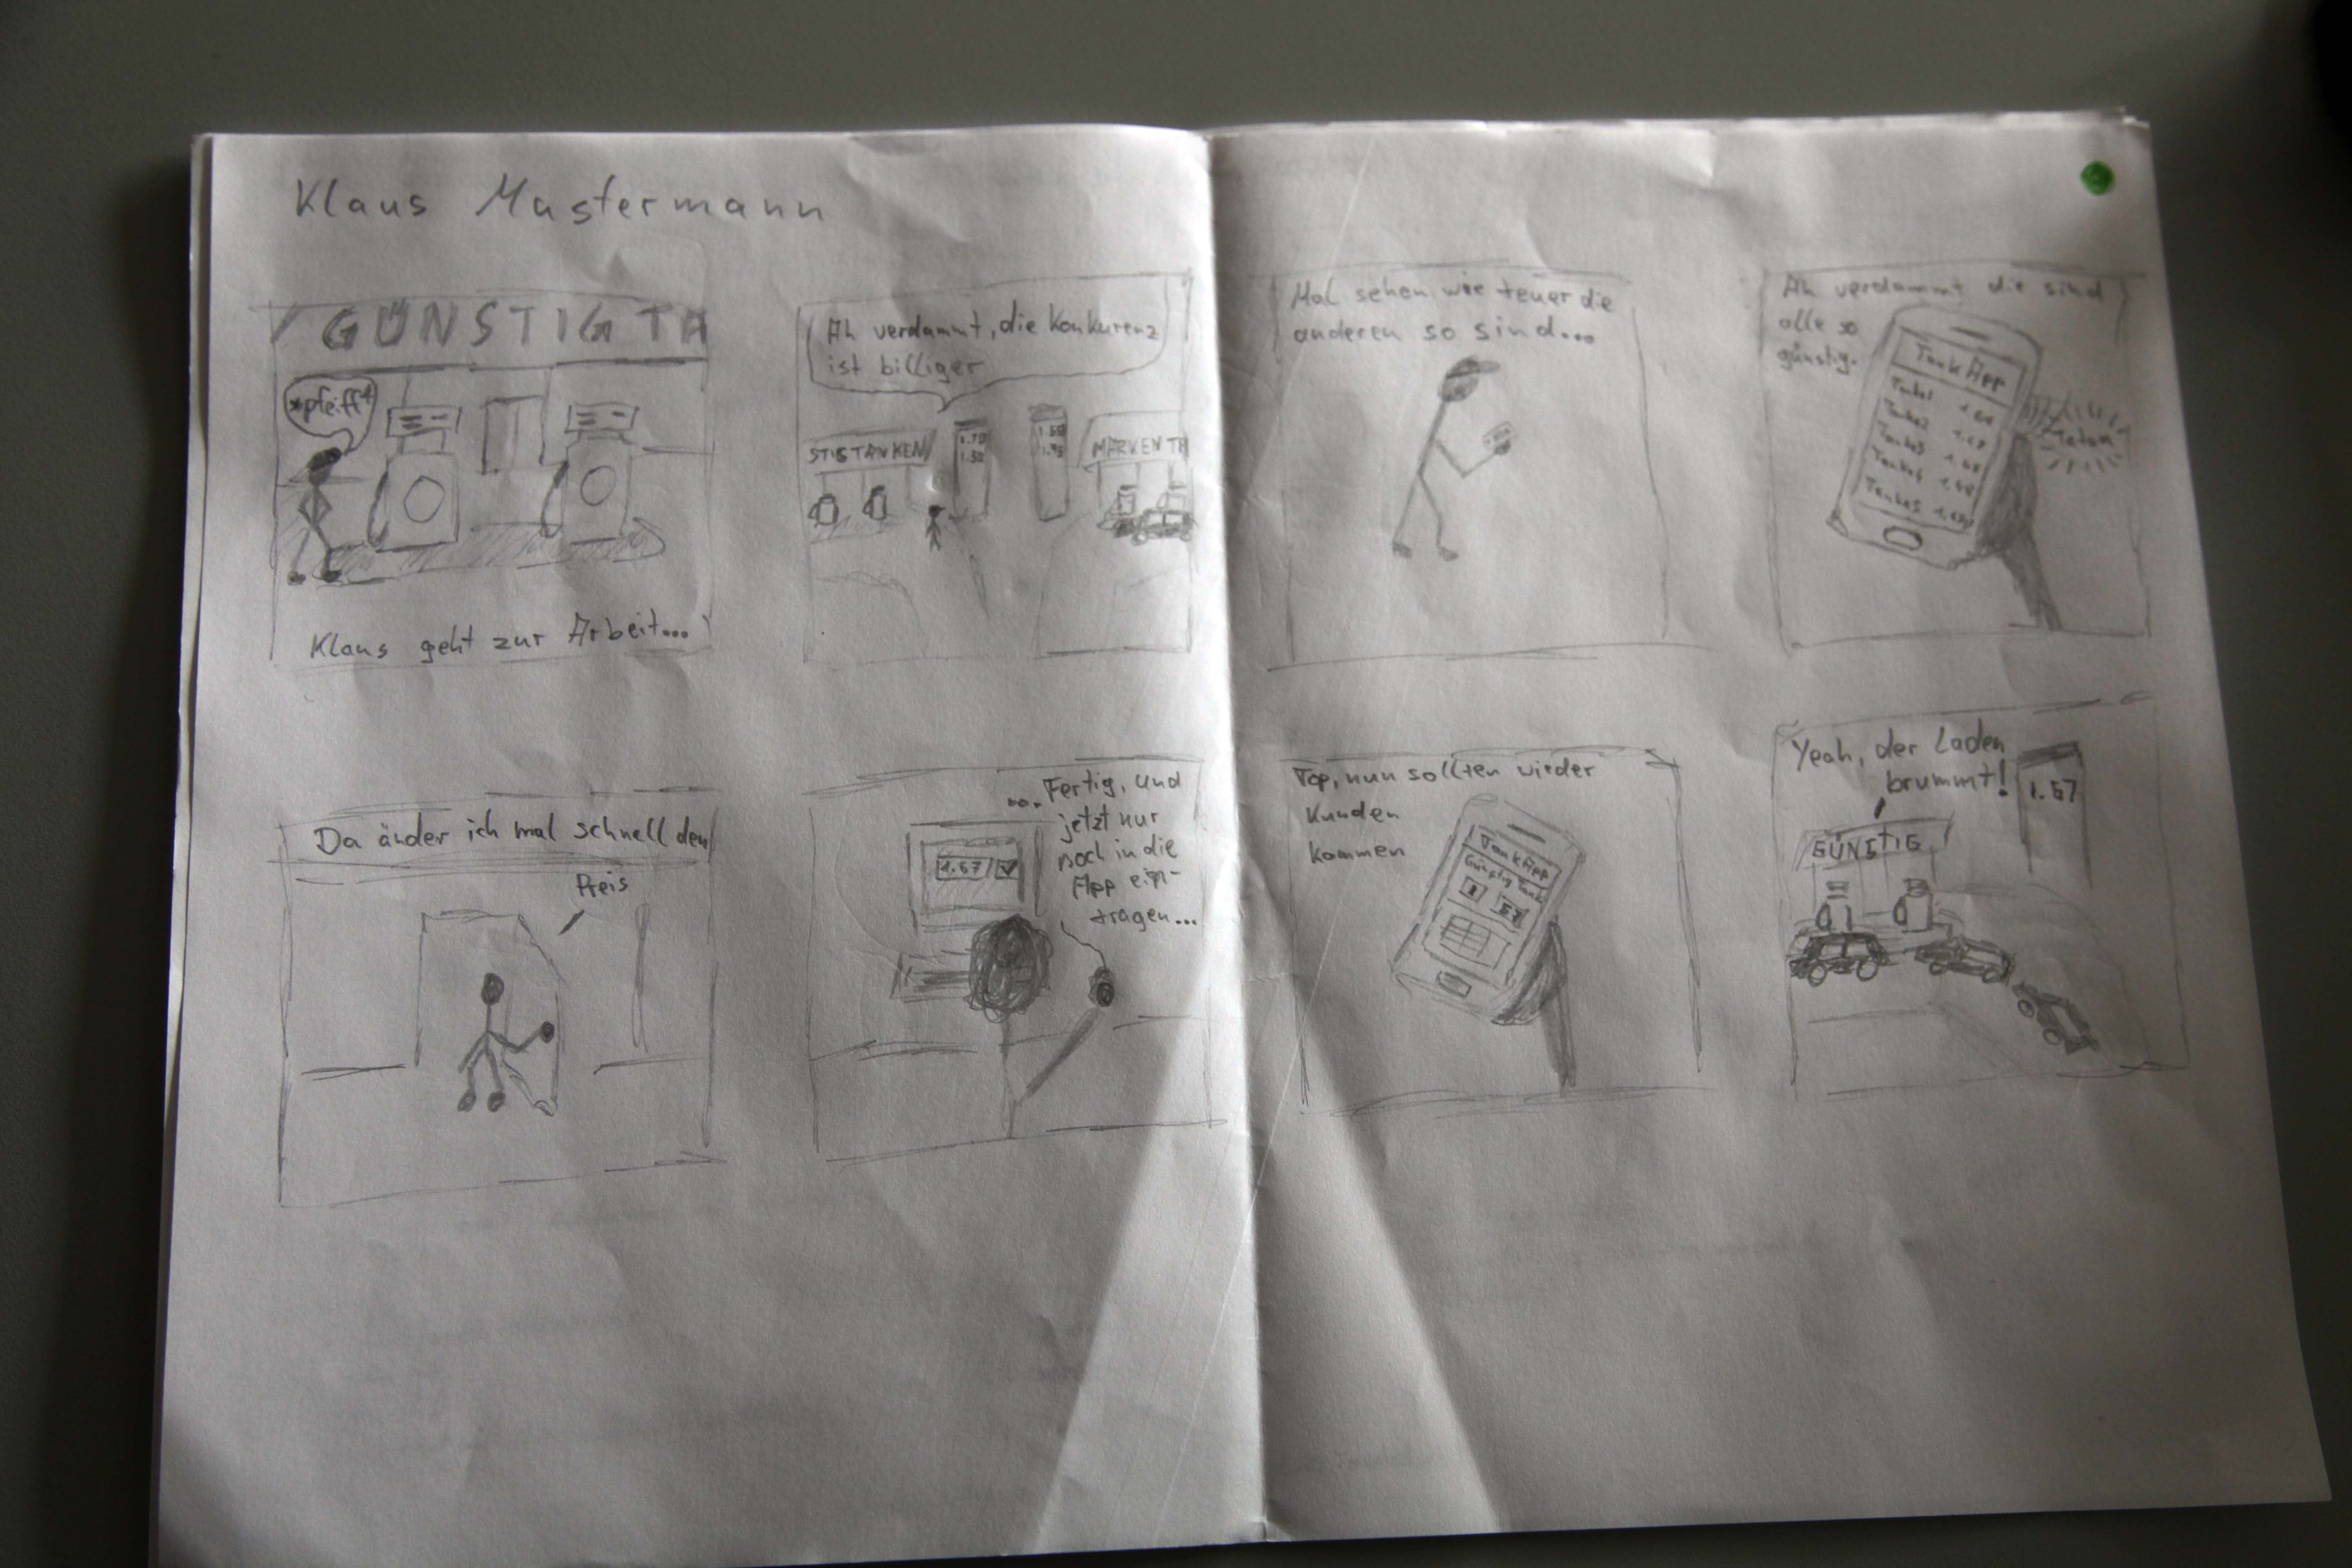 Klaus Mustermann
GÜNSTIG TA
*pfeiff*
Klaus geht zur Arbeit...
Ah verdammt, die Konkurenz
ist billiger
STIGTANKEN
MARKEN TA
Mal sehen wie teuer die
anderen so sind...
Ah verdammt die sind
alle so
günstig.
TankApp
Tanke1
Tanke2
Tanke3
Tanke4
Tanke5
Da änder ich mal schnell den
Preis
... Fertig, und
jetzt nur
noch in die
App ein-
tragen...
1.57
Top, nun sollten wieder
Kunden
kommen
TankApp
Günstig Tank
1 57
Yeah, der Laden
brummt!
1.57
GÜNSTIG